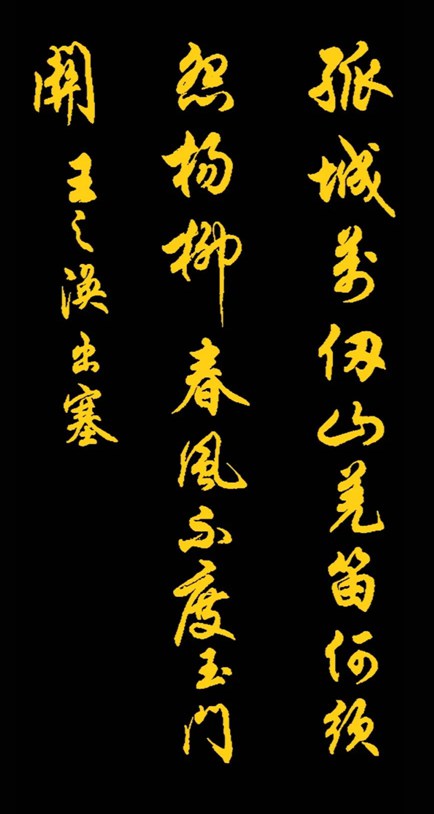 孤城萬仞山羌笛何須
怨楊柳春風不度玉門
關
王之渙出塞